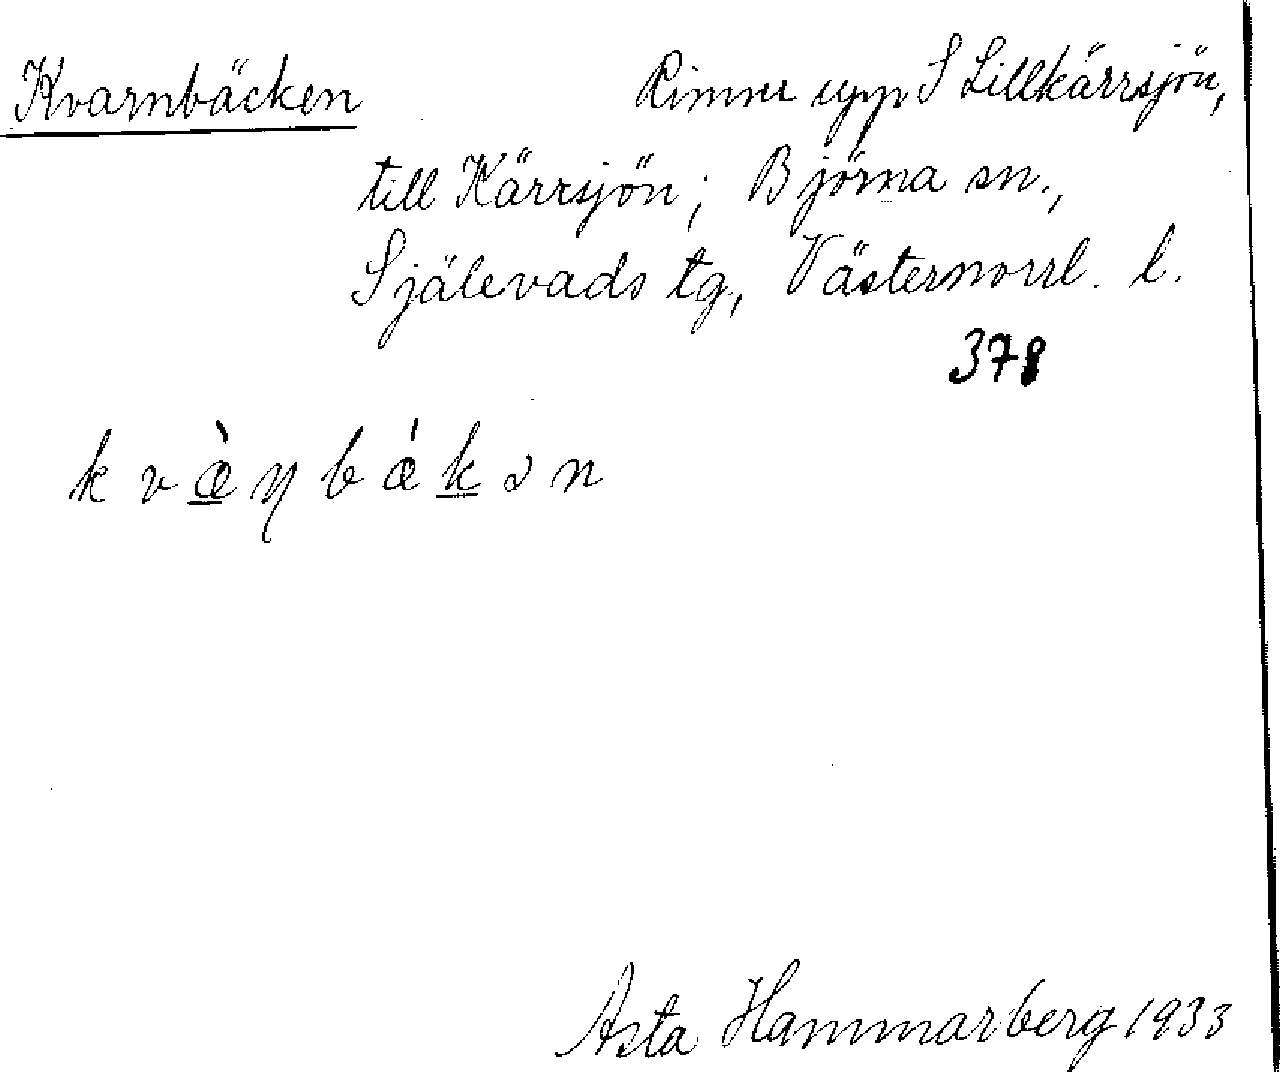 Kvarnbäcken Rinner upp S Lillkärrsjön,
till Kärrsjön; Björna sn.,
Själevads tg, Västernorrl. l.
378
k v æ̀ ŋ b ǽ k ə n
Asta Hammarberg 1933